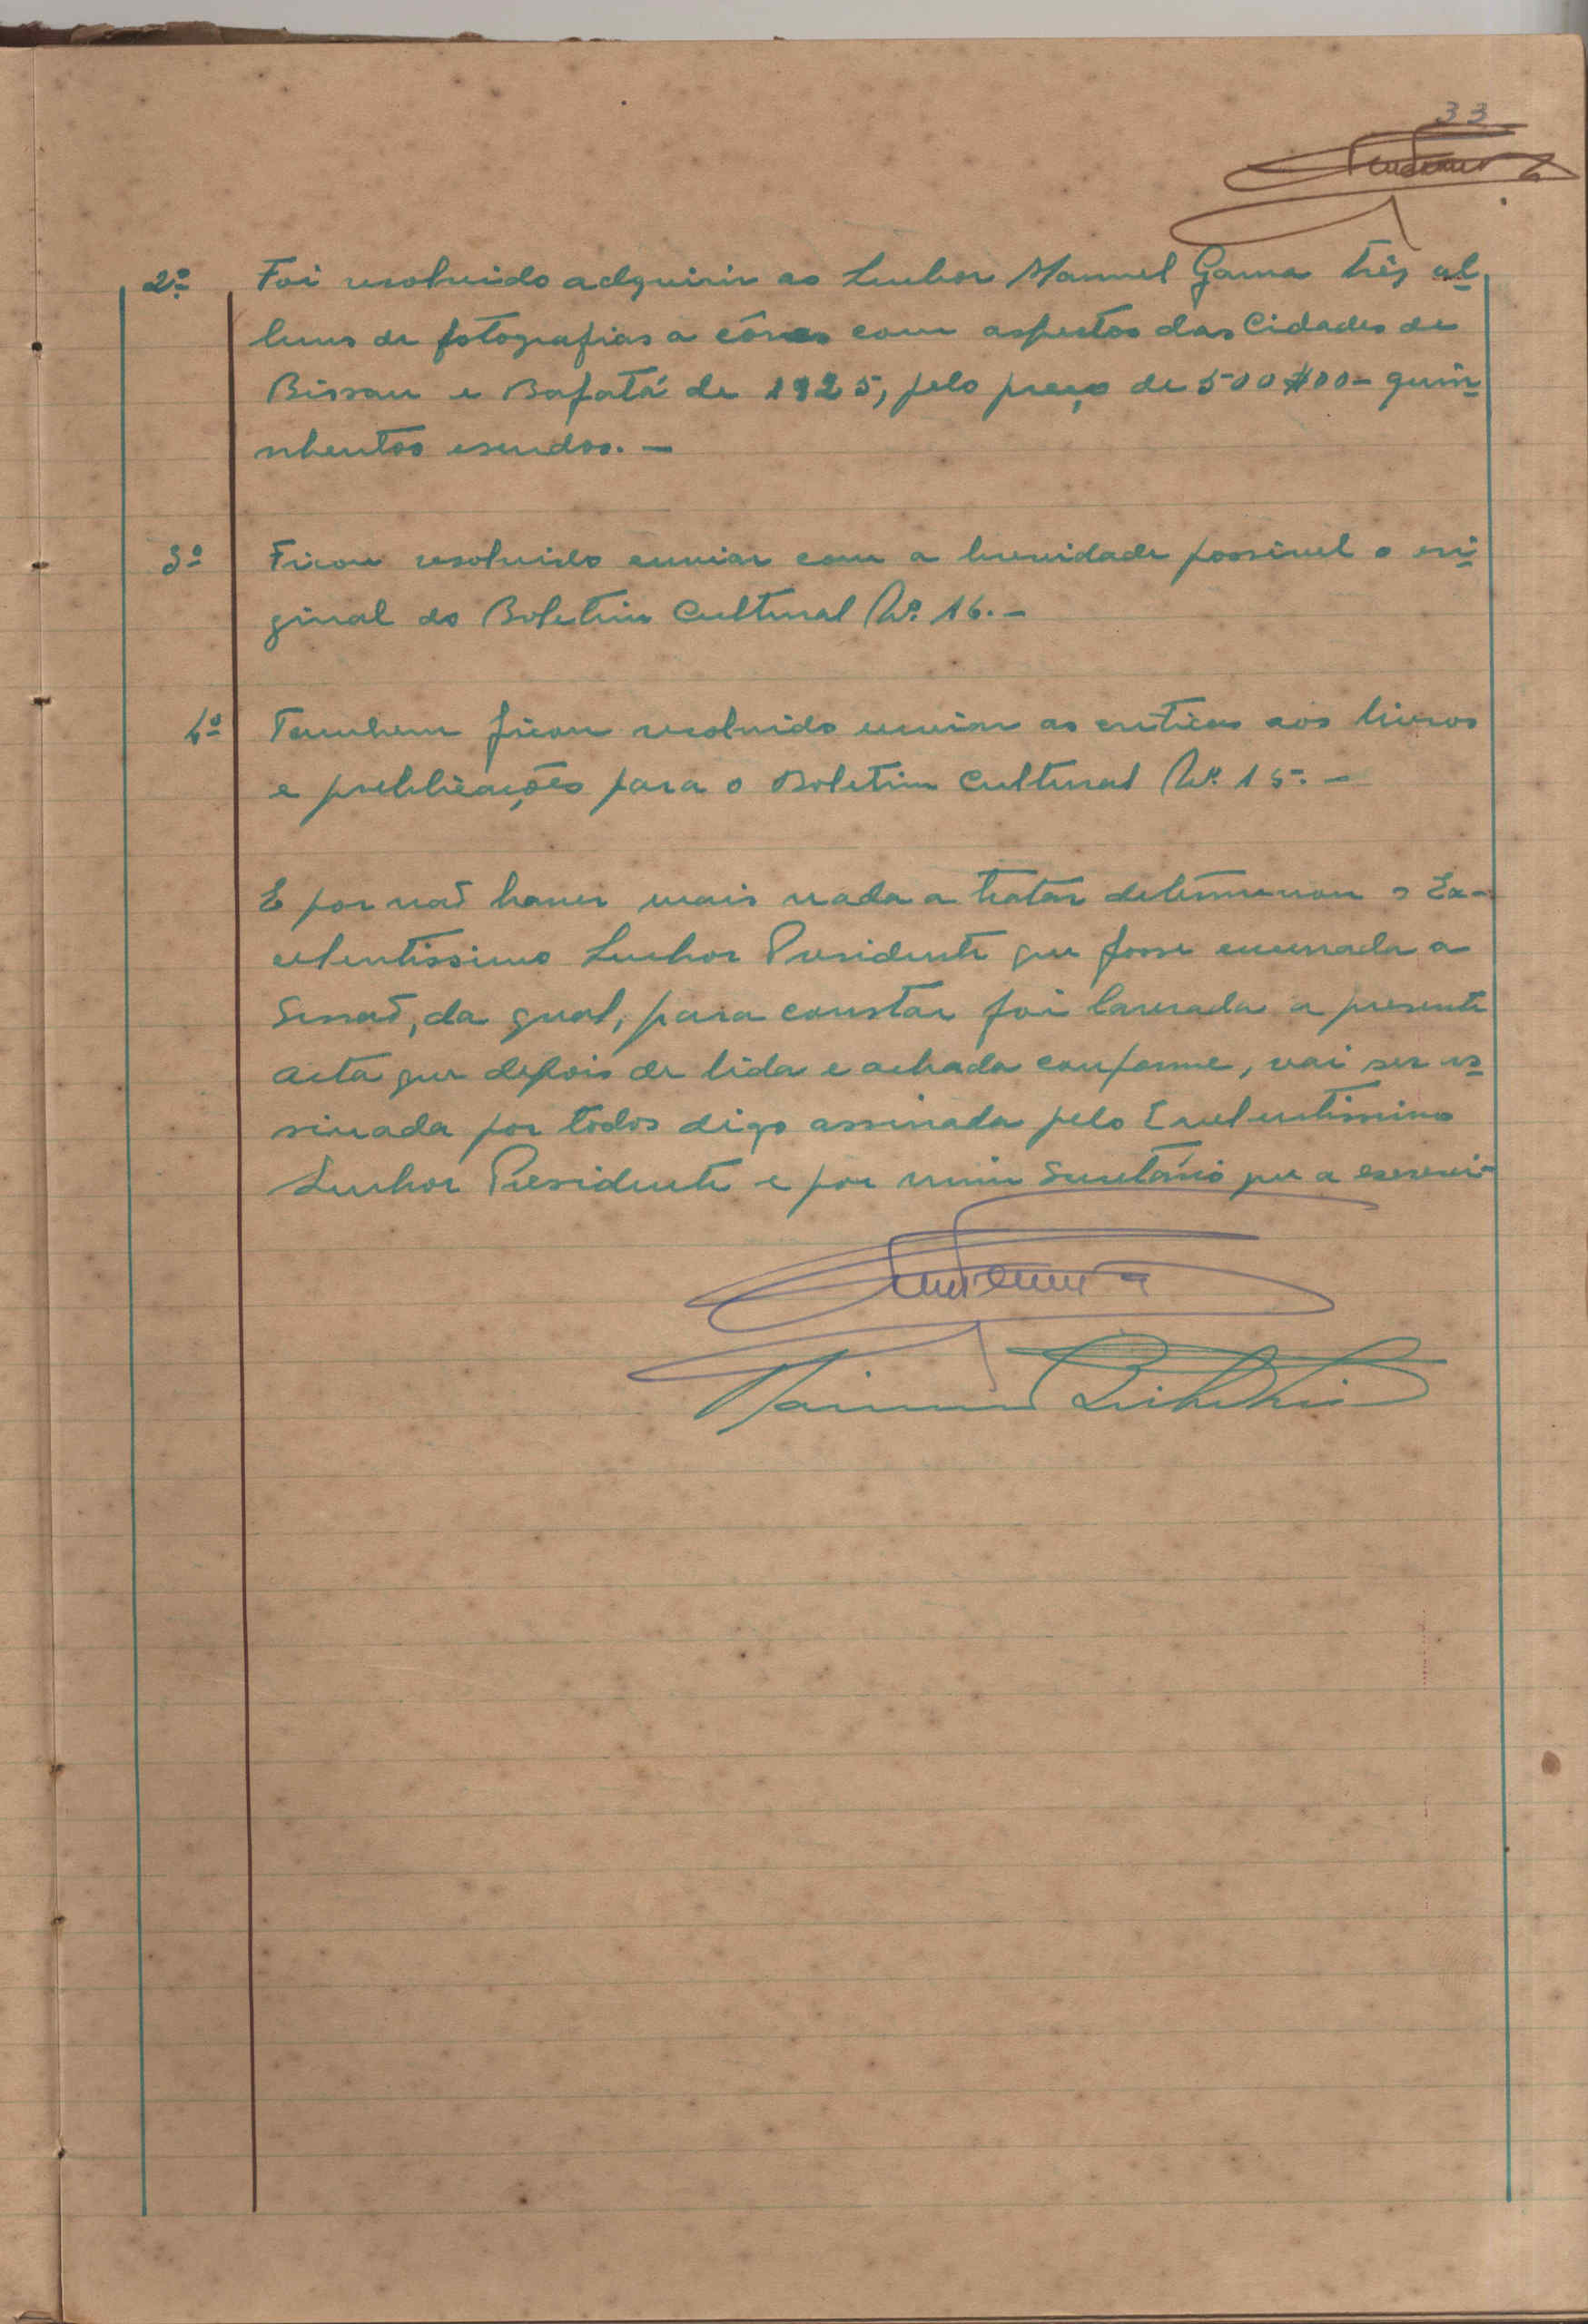 33
2º Foi resolvido adquirir ao Senhor Manuel Gama três al-
buns de fotografias a côres com aspectos das Cidades de
Bissau e Bafatá de 1925, pelo preço de 500$00 - quin-
nhentos escudos. -
3º Ficou resolvido enviar com a brevidade possivel o ori-
ginal do Boletim Cultural Nº. 16. -
4º Tambem ficou resolvido enviar as criticas aos livros
e publicações para o Boletim Cultural Nº. 15. -
E por não haver mais nada a tratar determinou o Ex-
celentissimo Senhor Presidente que fosse encerrada a
Sessão, da qual, para constar foi lavrada a presente
acta que depois de lida e achada conforme, vai ser as-
sinada por todos digo assinada pelo Excelentissimo
Senhor Presidente e por mim Secretário que a escrevi -